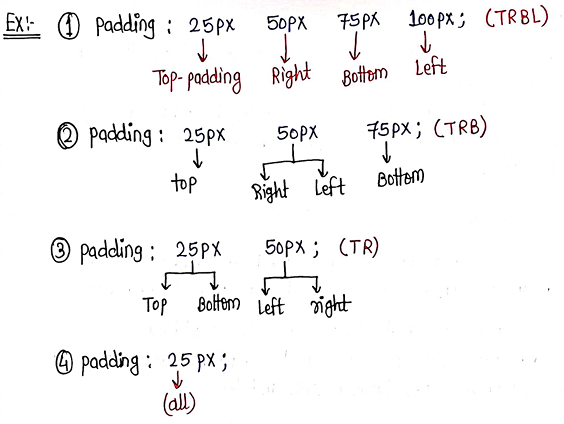 Ex:- ① Padding : 25px 50px 75px 100px; (TRBL)
Top-padding Right Bottom Left
② padding : 25px 50px 75px; (TRB)
top Right Left Bottom
③ padding : 25px 50px; (TR)
Top Bottom Left right
④ padding : 25px;
(all)